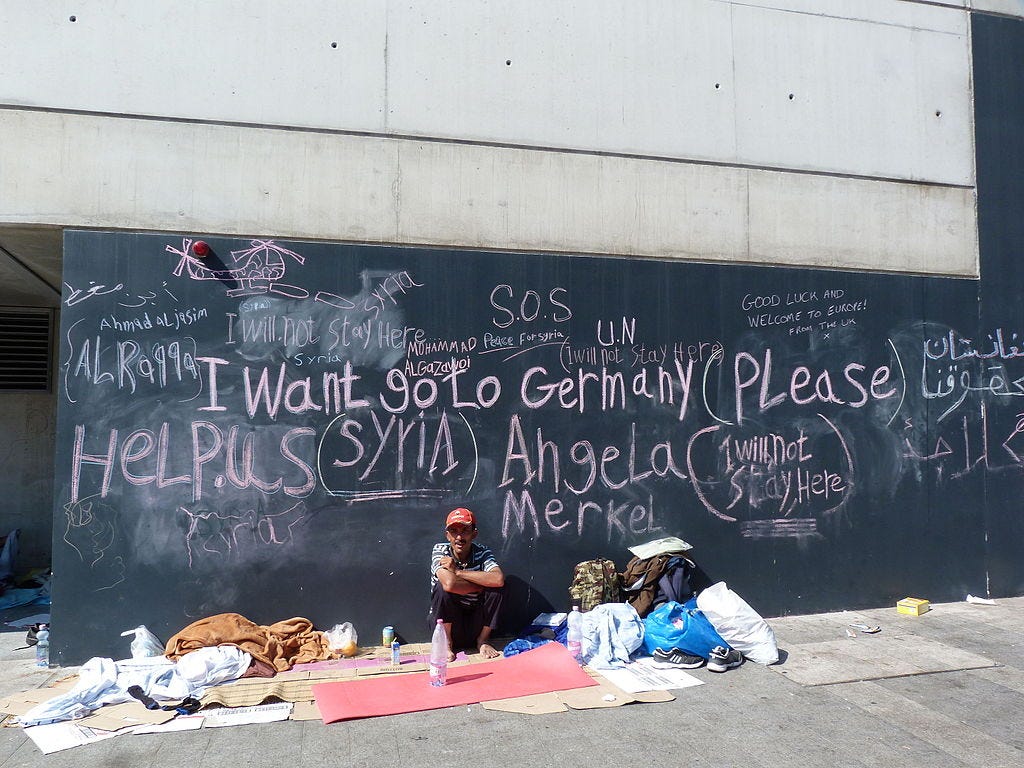 Syria
S.O.S
Peace For Syria
GOOD LUCK AND
WELCOME TO EUROPE!
FROM THE UK
x
Ahmad ALjasim
Syria
I will not Stay Here
Syria
MUHAMMAD
ALGazawoi
U.N
(I will not Stay Here)
(AL Raqqa)
I Want go to Germany (PLease)
HeLP.us (SyriA) AngeLa
MerkeL
(I will not
Stay Here)
Syria